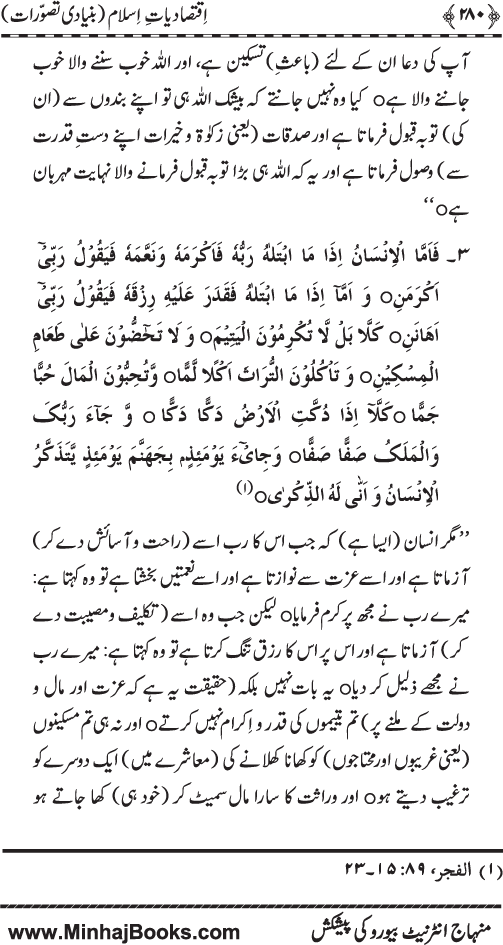 ﴿۲۸۰﴾ اِقتصادیاتِ اِسلام (بنیادی تصوّرات)
آپ کی دعا ان کے لئے (باعثِ) تسکین ہے، اور اللہ خوب سننے والا خوب
جاننے والا ہےo کیا وہ نہیں جانتے کہ بیشک اللہ ہی تو اپنے بندوں سے (ان
کی) توبہ قبول فرماتا ہے اور صدقات (یعنی زکوٰۃ و خیرات اپنے دستِ قدرت
سے) وصول فرماتا ہے اور یہ کہ اللہ ہی بڑا توبہ قبول فرمانے والا نہایت مہربان
ہےo‘‘
۳۔ فَاَمَّا الْاِنْسَانُ اِذَا مَا ابْتَلٰهُ رَبُّهٗ فَاَکْرَمَهٗ وَنَعَّمَهٗ فَیَقُوْلُ رَبِّیْٓ
اَکْرَمَنِo وَ اَمَّآ اِذَا مَا ابْتَلٰهُ فَقَدَرَ عَلَیْهِ رِزْقَهٗ فَیَقُوْلُ رَبِّیْٓ
اَهَانَنِo کَلَّا بَلْ لَّا تُکْرِمُوْنَ الْیَتِیْمَo وَ لَا تَحٰٓضُّوْنَ عَلٰی طَعَامِ
الْمِسْکِیْنِo وَ تَاْکُلُوْنَ التُّرَاثَ اَکْلًا لَّمًّاo وَّتُحِبُّوْنَ الْمَالَ حُبًّا
جَمًّاo کَلَّآ اِذَا دُکَّتِ الْاَرْضُ دَکًّا دَکًّاo وَّ جَآءَ رَبُّکَ
وَالْمَلَکُ صَفًّا صَفًّاo وَجِایْٓءَ یَوْمَئِذٍم بِجَهَنَّمَ یَوْمَئِذٍ یَّتَذَکَّرُ
الْاِنْسَانُ وَ اَنّٰی لَهُ الذِّکْرٰیo(۱)
’’مگر انسان (ایسا ہے) کہ جب اس کا رب اسے (راحت و آسائش دے کر)
آزماتا ہے اور اسے عزت سے نوازتا ہے اور اسے نعمتیں بخشتا ہے تو وہ کہتا ہے:
میرے رب نے مجھ پر کرم فرمایاo لیکن جب وہ اسے (تکلیف و مصیبت دے
کر) آزماتا ہے اور اس پر اس کا رزق تنگ کرتا ہے تو وہ کہتا ہے: میرے رب
نے مجھے ذلیل کر دیاo یہ بات نہیں بلکہ (حقیقت یہ ہے کہ عزت اور مال و
دولت کے ملنے پر) تم یتیموں کی قدر و اِکرام نہیں کرتےo اور نہ ہی تم مسکینوں
(یعنی غریبوں اور محتاجوں) کو کھانا کھلانے کی (معاشرے میں) ایک دوسرے کو
ترغیب دیتے ہوo اور وراثت کا سارا مال سمیٹ کر (خود ہی) کھا جاتے ہو
(۱) الفجر، ۸۹: ۱۵۔۲۳
www.MinhajBooks.com منہاج انٹرنیٹ بیورو کی پیشکش